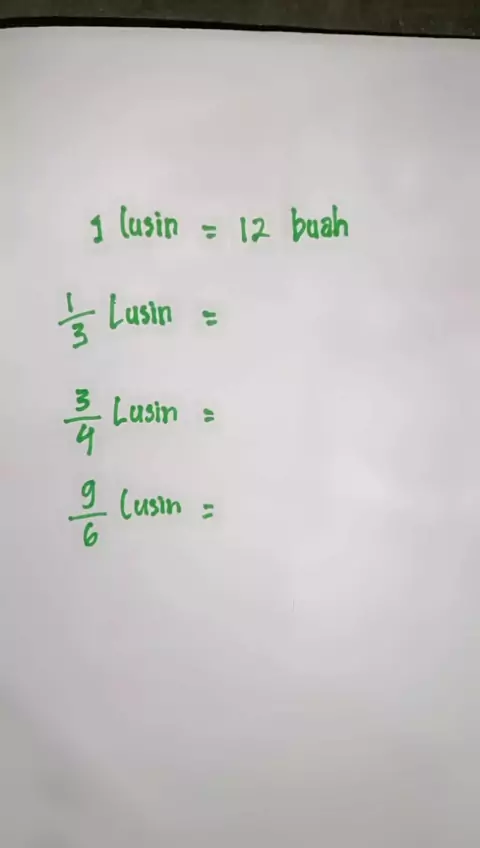 1 lusin = 12 buah
1/3 Lusin =
3/4 Lusin =
9/6 Lusin =